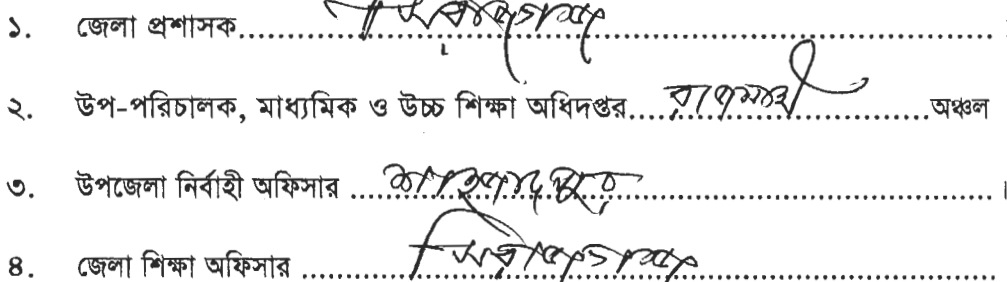 ১. জেলা প্রশাসক.......সিরাজগঞ্জ.......।
২. উপ-পরিচালক, মাধ্যমিক ও উচ্চ শিক্ষা অধিদপ্তর.....রাজশাহী.....অঞ্চল
৩. উপজেলা নির্বাহী অফিসার ....শাহজাদপুর.....।
৪. জেলা শিক্ষা অফিসার .......সিরাজগঞ্জ.......